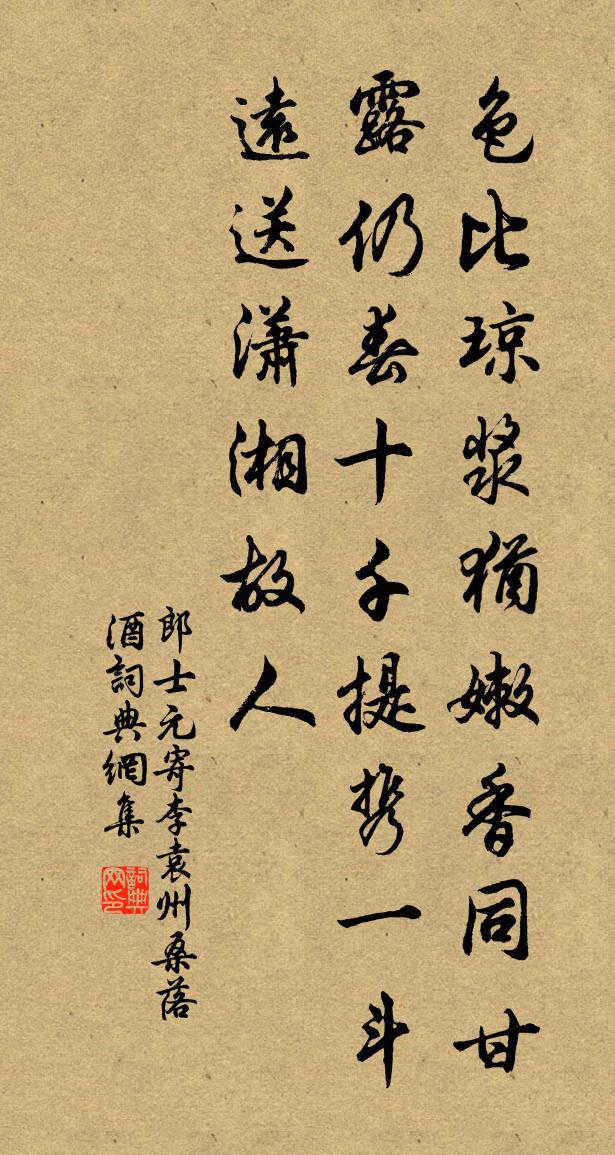 色比琼漿猶嫩香同甘
露仍春十千提攜一斗
遠送瀟湘故人
郎士元寄李袁州桑落
酒詞典網集
詞典网印